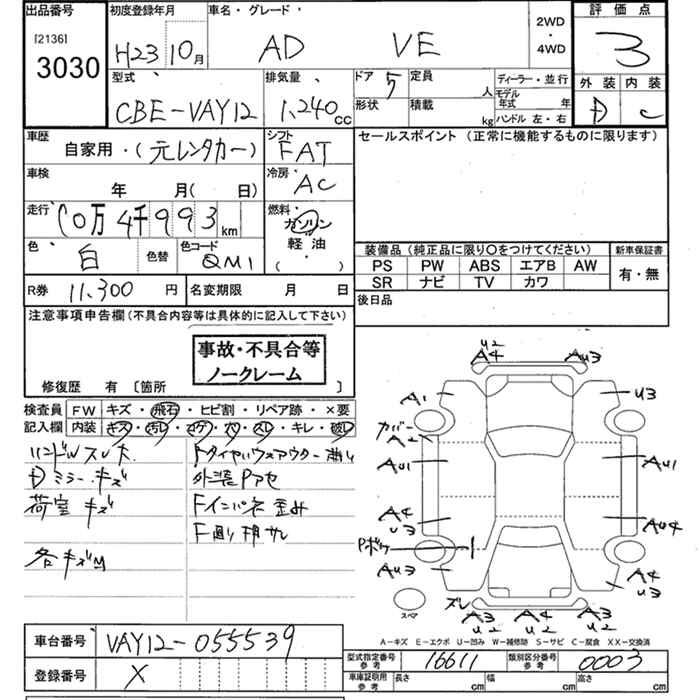 出品番号 初度登録年月 車名・グレード・ 評価点
[2136] 3030 H23 10月 AD VE 2WD・4WD 3
型式 排気量 ドア 5 定員 人 ディーラー・並行 外装 内装
CBE-VAY12 1,240cc 形状 積載 kg モデル年式 年 D C
ハンドル 左・右
車歴 自家用・(元レンタカー) シフト FAT セールスポイント (正常に機能するものに限ります)
車検 年 月( 日) 冷房 AC
走行 10万4千993km 燃料 ガソリン 軽油 ( ・ )
色 白 色替 色コード QM1
装備品 (純正品に限り○をつけてください) 新車保証書
PS PW ABS エアB AW 有・無
SR ナビ TV カワ
R券 11,300円 名変期限 月 日 後日品
注意事項申告欄(不具合内容等は具体的に記入して下さい)
事故・不具合等
ノークレーム
修復歴 有 〔箇所 〕
検査員記入欄 FW キズ・飛石・ヒビ割・リペア跡・×要
内装 キズ・汚レ・コゲ・穴・スレ・キレ・破レ
ハンドルスレ大
Dミラーキズ
荷室キズ
各キズM
外装Pアセ
Fインパネ歪み
U2
A4 AU3
A1 U3
カバー
A2
AU1 AU1
A4 AU4
U2
Pボケ
AU3 A4
U3
ズレ
A3 A4 A3
U2 U2 U2
スペア
A−キズ E−エクボ U−凹み W−補修跡 S−サビ C−腐食 XX−交換済
車台番号 VAY12-055539
登録番号 X
型式指定番号 参考 16611 類別区分番号 参考 0003
車庫証明用 参考 長さ cm 幅 cm 高さ cm